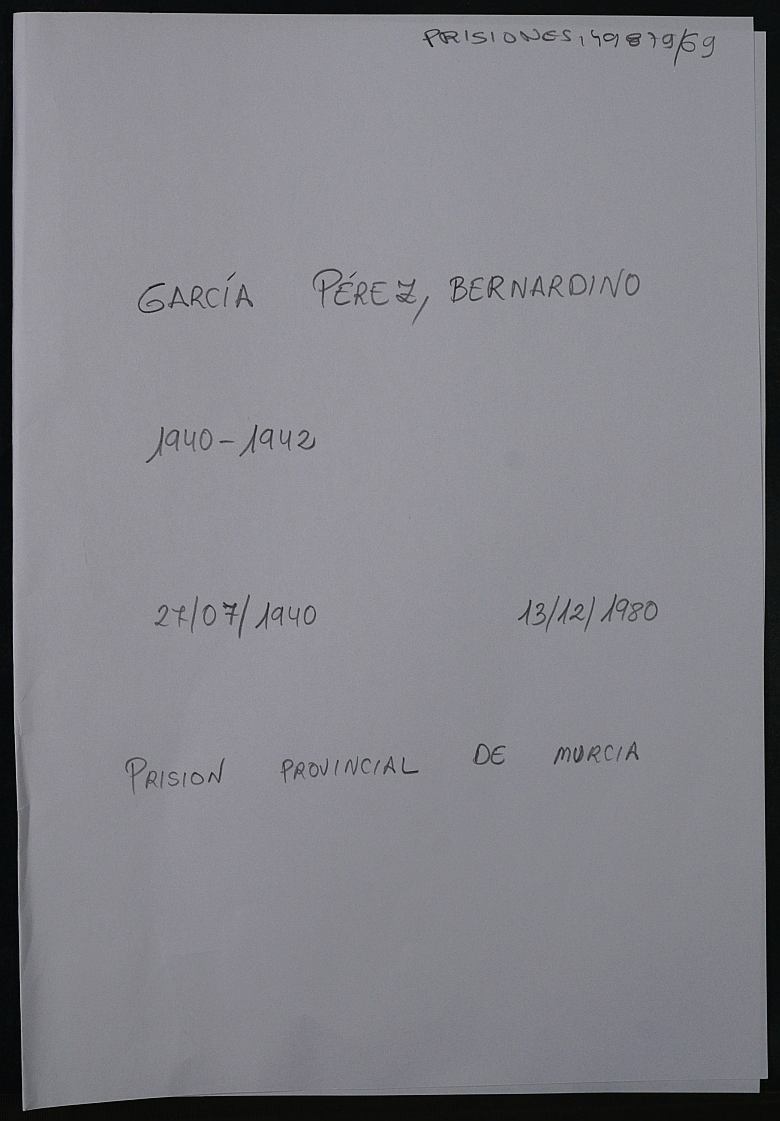 PRISIONES, 49879/69
GARCÍA PÉREZ, BERNARDINO
1940-1942
27/07/1940 13/12/1980
PRISION PROVINCIAL DE MURCIA